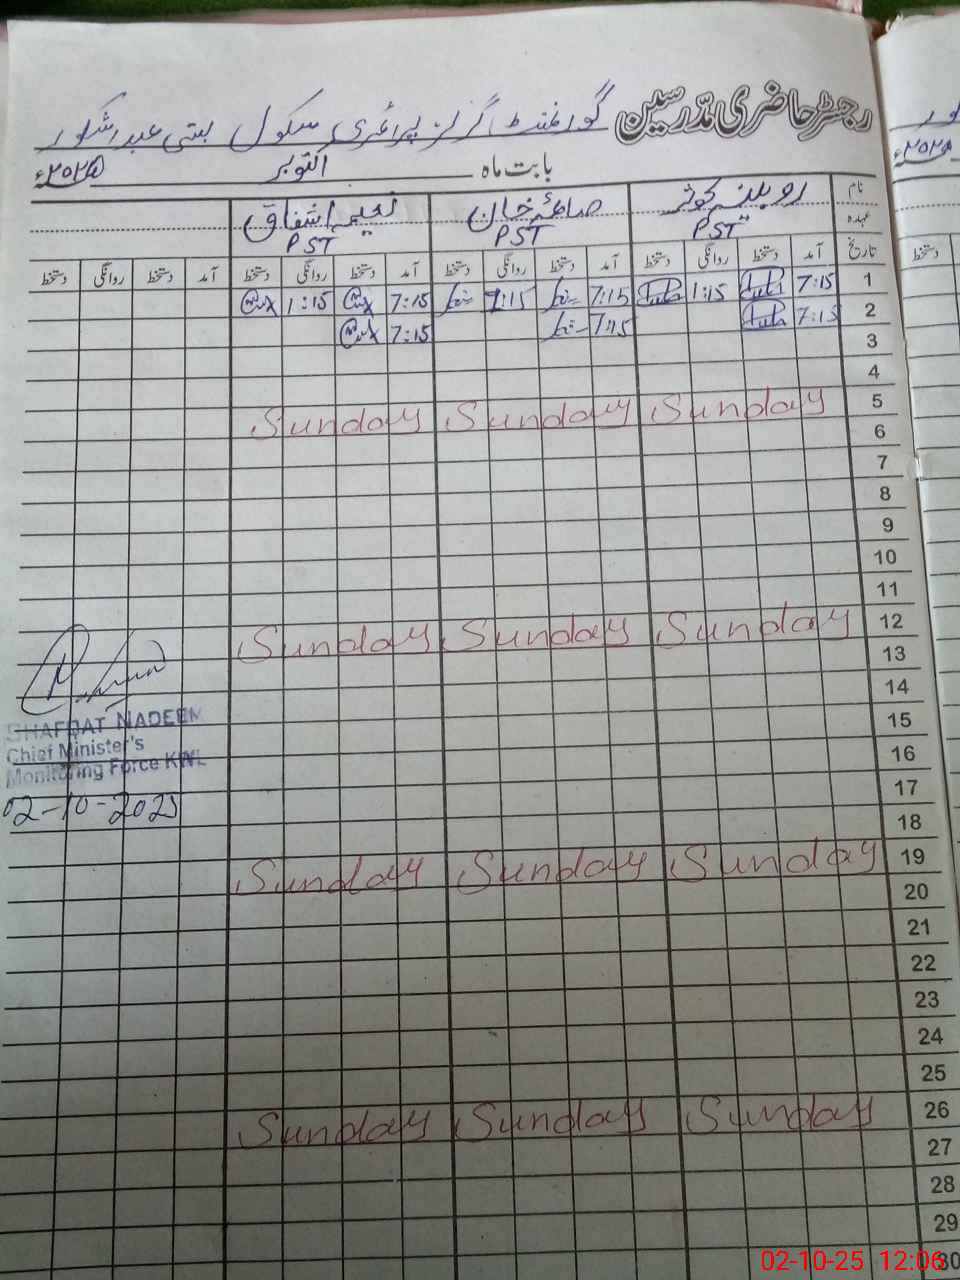 رجسٹر حاضری مدرسین گورنمنٹ گرلز پرائمری سکول بستی عبدالشکور
بابت ماہ اکتوبر ۲۰۲۵ء
نام روبینہ کوثر صائمہ خان نعیمہ اشفاق
عہدہ PST PST PST
تاریخ آمد دستخط روانگی دستخط آمد دستخط روانگی دستخط آمد دستخط روانگی دستخط آمد دستخط روانگی دستخط
1 7:15 1:15 7:15 1:15 7:15 1:15
2 7:15 7:15 7:15
3
4
5 Sunday Sunday Sunday
6
7
8
9
10
11
12 Sunday Sunday Sunday
13
14
15
16
17
18
19 Sunday Sunday Sunday
20
21
22
23
24
25
26 Sunday Sunday Sunday
27
28
29
30
SHAFQAT NADEEM
Chief Minister's
Monitoring Force KWL
02-10-2025
۲۰۲۵ء
دستخط
02-10-25 12:06